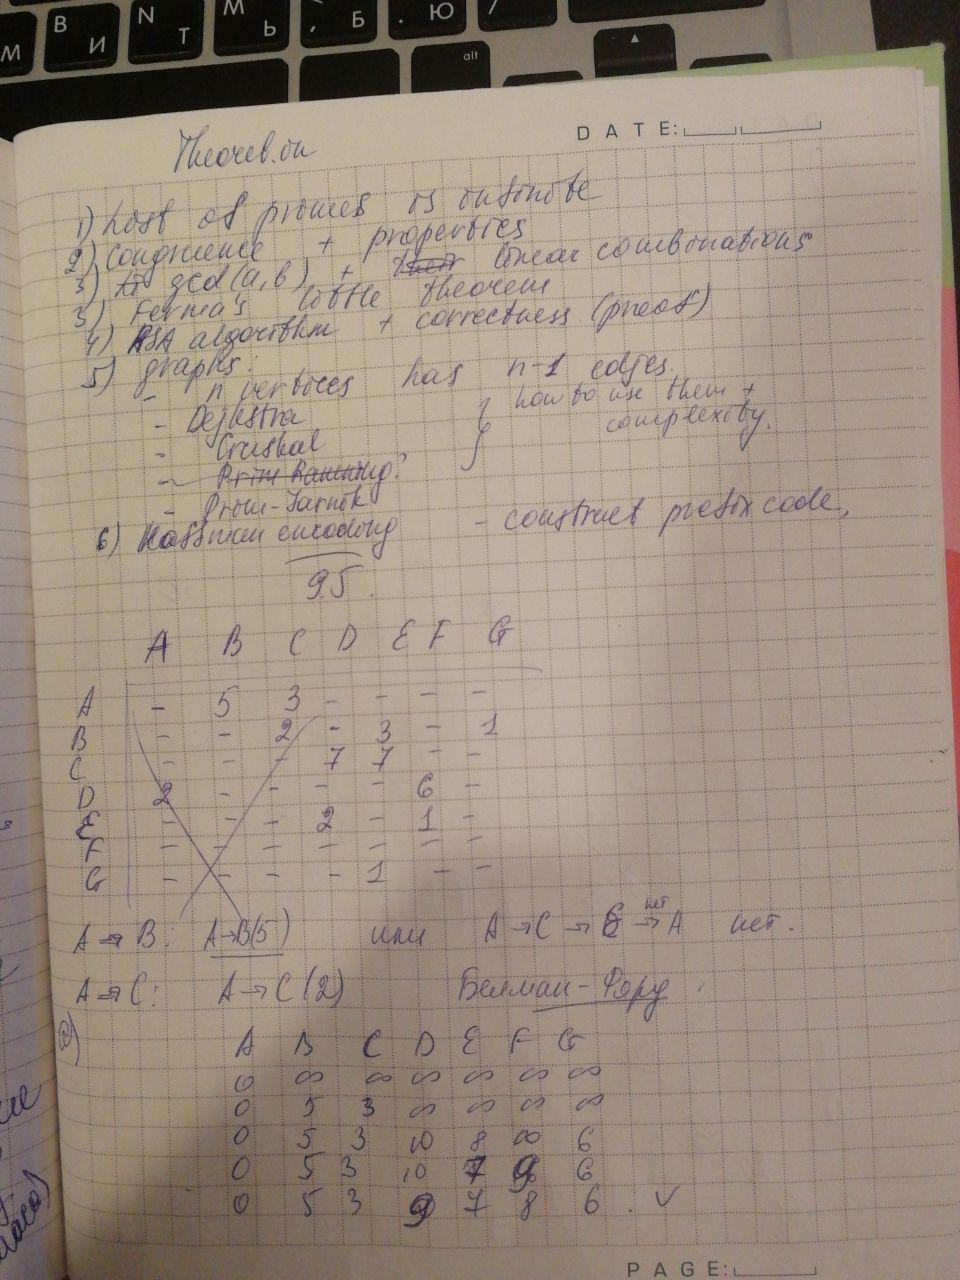 М В И N Т М Ь , Б . Ю /
alt
DATE:
Theoret.on
1) List of primes is infinite
2) Congruence + properties
3) gcd(a,b) + linear combinations
3) Fermat's little theorem
4) RSA algorithm + correctness (proof)
5) graphs:
- n vertices has n-1 edjes.
- Dejkstra } how to use them +
- Cruskal complexity.
- Prim Ranning?
- Prim-Jarnik
6) Haffman encoding - construct prefix code,
95.
A B C D E F G
A - 5 3 - - - -
B - - 2 - 3 - 1
C - - - 7 7 - -
D 2 - - - - 6 -
E - - - 2 - 1 -
F - - - - - - -
G - - - - 1 - -
A → B: A→B(5) или A → C → E →нет A нет.
A → C: A → C (2) Белман-Форд
a)
A B C D E F G
0 ∞ ∞ ∞ ∞ ∞ ∞
0 5 3 ∞ ∞ ∞ ∞
0 5 3 10 8 ∞ 6
0 5 3 10 7 9 6
0 5 3 9 7 8 6 . ✓
PAGE: